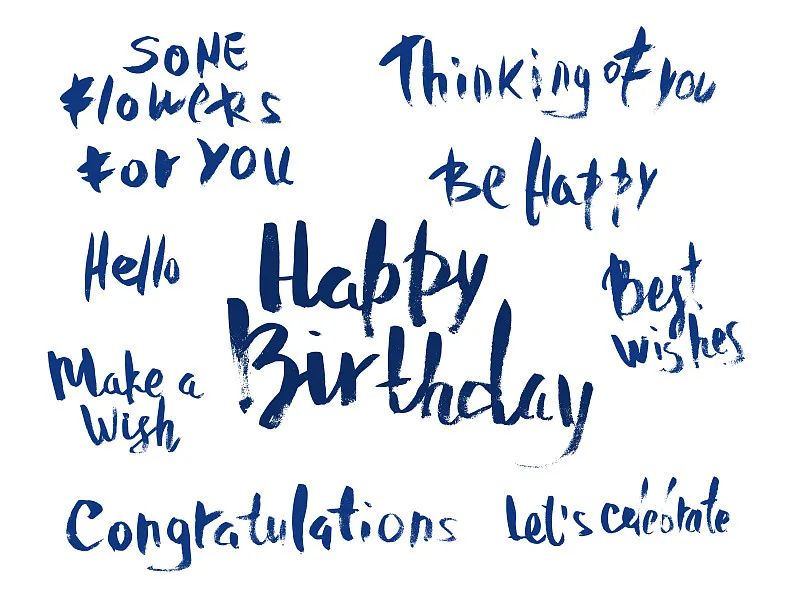 SOME
Flowers
For You
Thinking of you
Be Happy
Hello
Happy
Birthday
Best
wishes
Make a
Wish
Congratulations
Let's celebrate